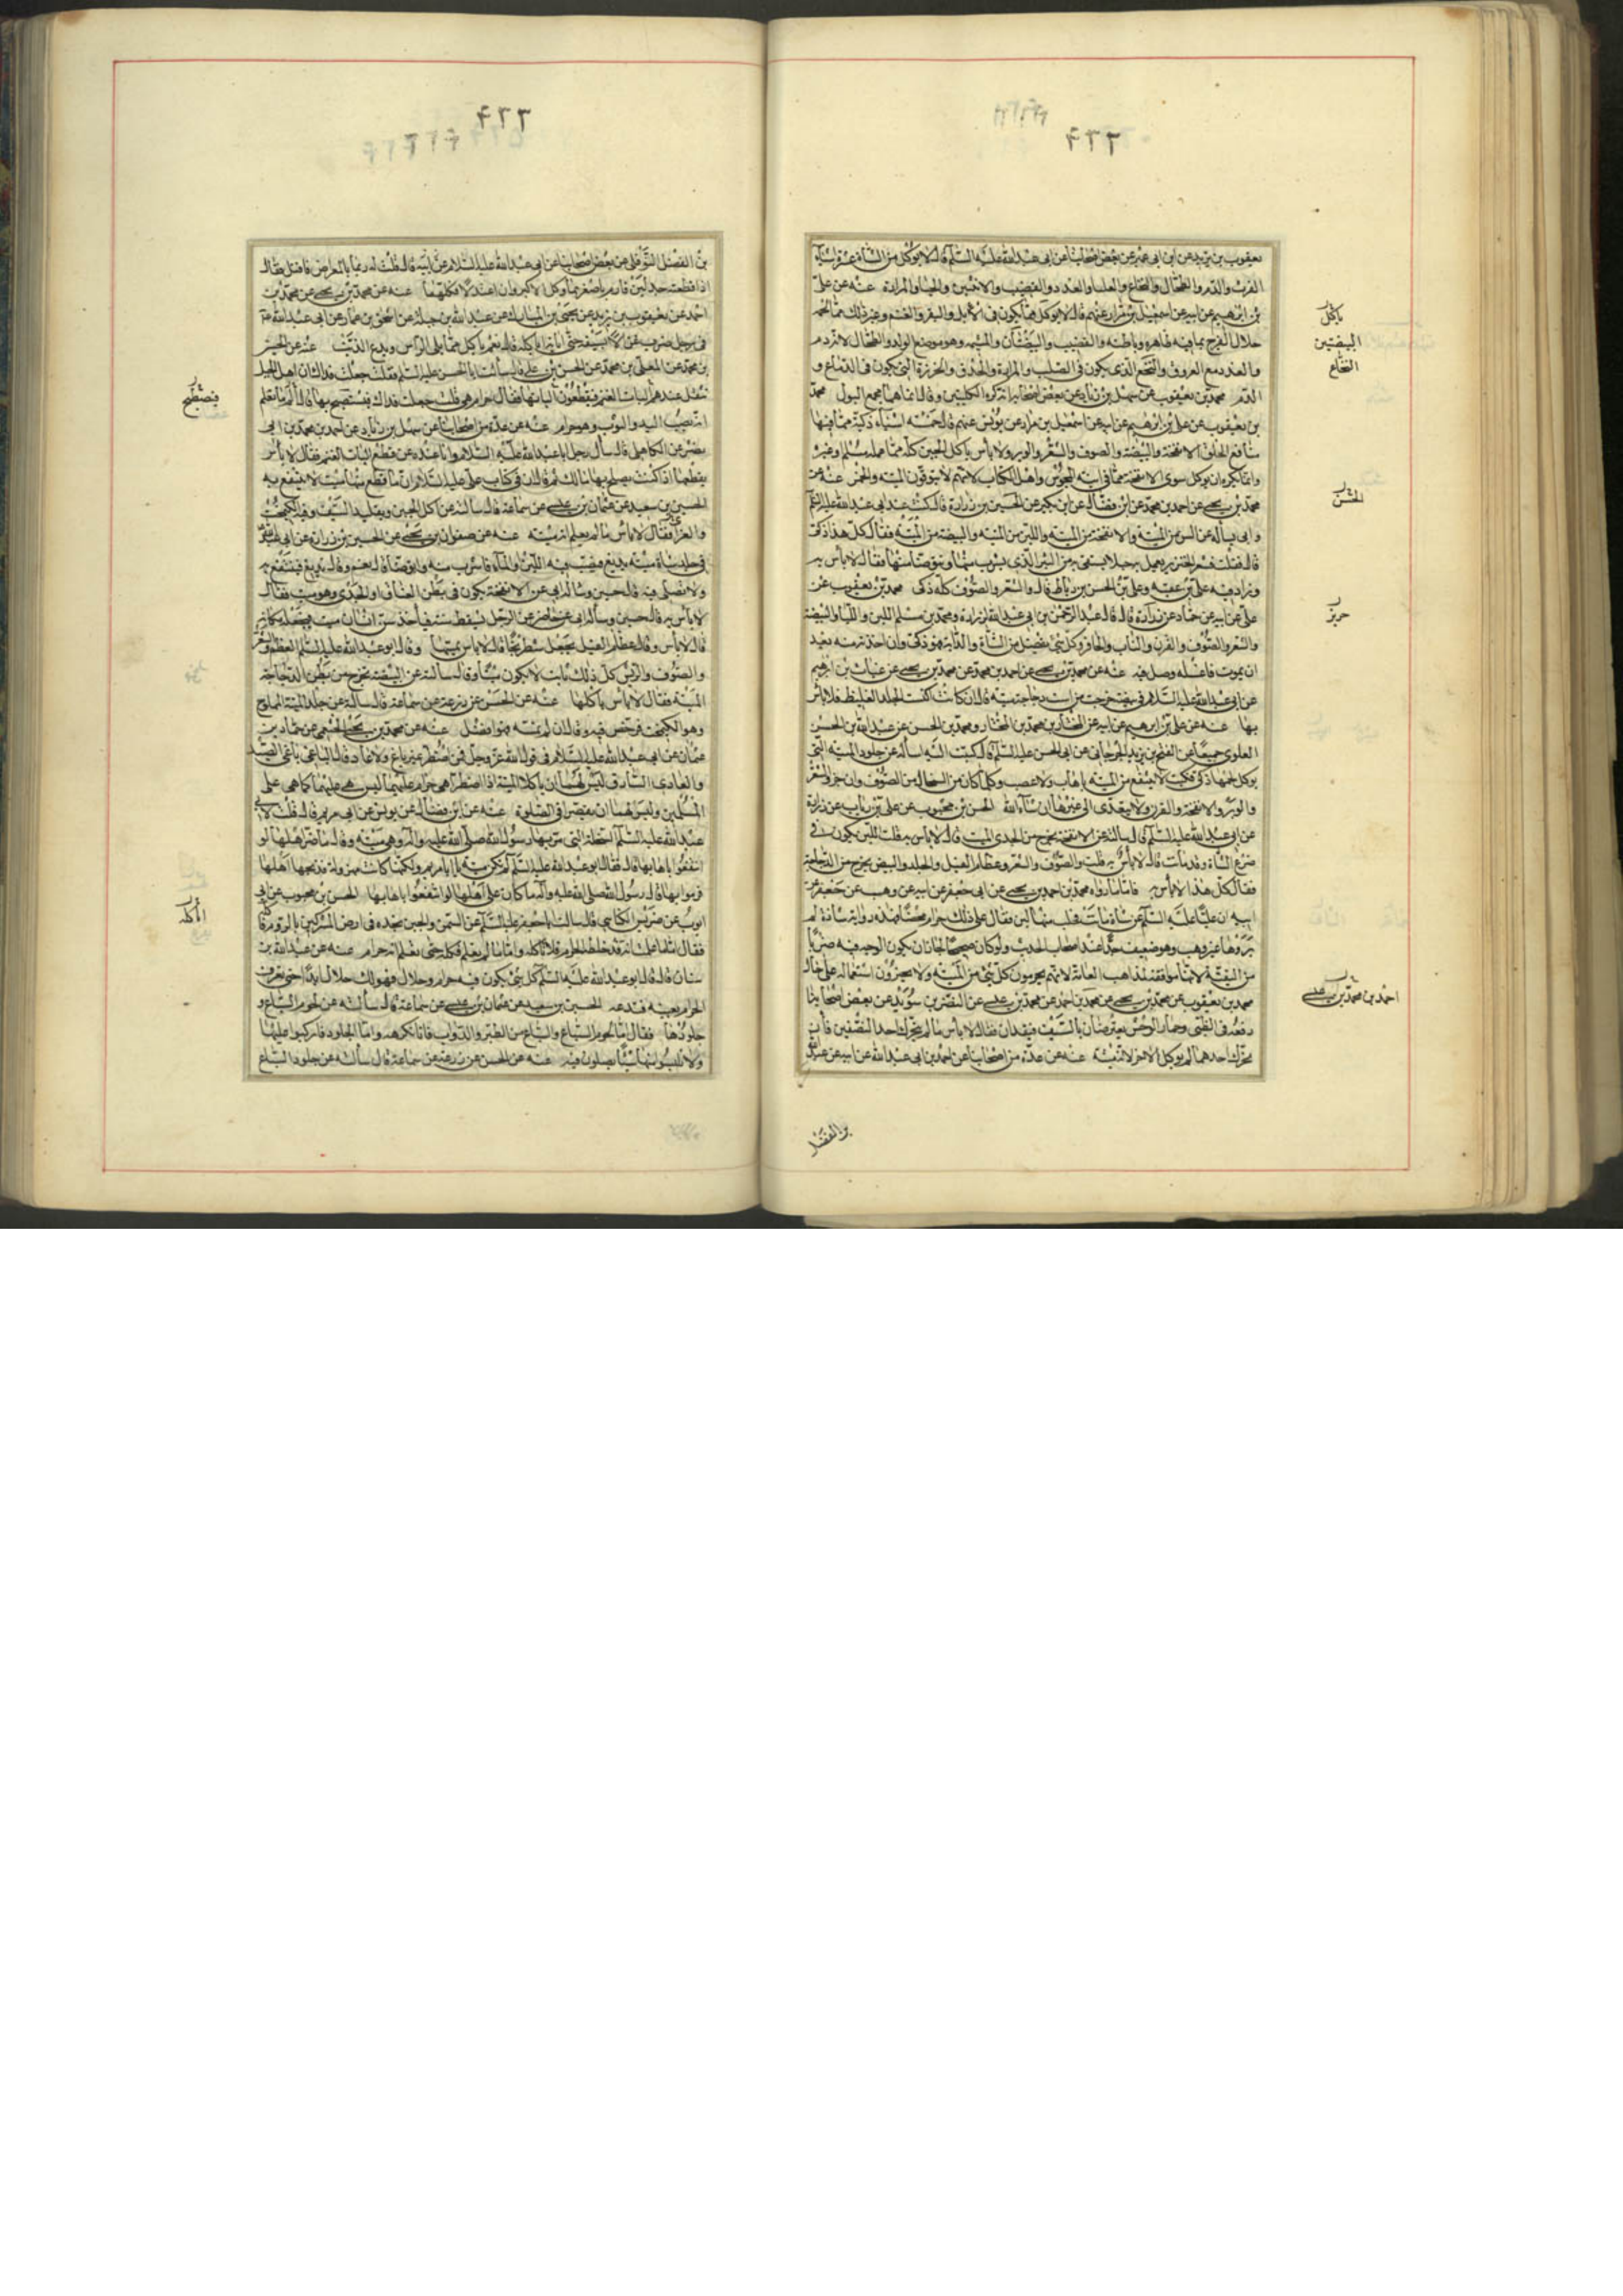 يعقوب بن يزيد عن ابن ابي عمير عن بعض اصحابنا عن ابي عبد الله عليه السلم قال لا يوكل من الشاة عشرة اشياء
الفرث والدم والطحال والنخاع والعلباء والغدد والقضيب والانثيين والحياء والمرارة عنه عن علي
بن ابرهيم عن ابيه عن اسمعيل بن مرار عنهم قال لا يوكل مما يكون في الابل والبقر والغنم وغير ذلك مما لحمه
حلال الفرج بما فيه ظاهره وباطنه والقضيب والبيضتان والمشيمه وهو موضع الولد والطحال لانه دم
والغدد مع العروق والنخع الذي يكون في الصلب والمرارة والحدق والخرزة التي تكون في الدماغ و
الدم محمد بن يعقوب عن سهل بن زياد عن بعض اصحابنا انه كره الكليتين وقال انما هما مجمع البول محمد
بن يعقوب عن علي بن ابرهيم عن ابيه عن اسمعيل بن مرار عن يونس عنهم قال خمسه اشياء ذكية مما فيها
منافع الخلق الانفخة والبيضة والصوف والشعر والوبر ولا باس باكل الجبن كله مما عمله مسلم او غيره
وانما يكره ان يوكل سوى الانفخة مما في انية المجوس واهل الكتاب لانهم لا يتوقون الميتة والخمر عنه عن
محمد بن يحيى عن احمد بن محمد عن ابن فضال عن ابن بكير عن الحسين بن زرارة قال كنت عند ابي عبد الله عليه السلم
وابي يساله عن السن من الميتة والانفخة من الميتة واللبن من الميتة والبيضة من الميتة فقال كل هذا ذكي
قال فقلت فشعر الخنزير يعمل به حبلا يستقى به من البئر الذي يشرب منها او يتوضا منها فقال لا باس به
وزاد فيه علي بن عقبه وعلي بن الحسن بن رباط قال والشعر والصوف كله ذكي محمد بن يعقوب عن
علي عن ابيه عن حماد عن زرارة قال قال عبد الرحمن بن ابي عبد الله لزرارة ومحمد بن مسلم اللبن واللبا والبيضة
والشعر والصوف والقرن والناب والحافر وكل شئ يفصل من الشاة والدابة فهو ذكي وان اخذته منه بعد
ان يموت فاغسله وصل فيه عنه عن محمد بن يحيى عن احمد بن محمد عن محمد بن يحيى عن غياث بن ابرهيم
عن ابي عبد الله عليه السلام في بيضة خرجت من است دجاجة ميتة قال ان كانت اكتست الجلد الغليظ فلا باس
بها عنه عن علي بن ابرهيم عن ابيه عن المختار بن محمد بن المختار ومحمد بن الحسن عن عبد الله بن الحسن
العلوي جميعا عن الفتح بن يزيد الجرجاني عن ابي الحسن عليه السلم قال كتبت اليه اساله عن جلود الميتة التي
يوكل لحمها ذكي فكتب لا ينتفع من الميتة باهاب ولا عصب وكلما كان من السخال من الصوف وان جز والشعر
والوبر والانفخة والقرن ولا يتعدى الى غيرها ان شاء الله الحسن بن محبوب عن علي بن رياب عن زرارة
عن ابي عبد الله عليه السلم قال سالته عن الانفخة تخرج من الجدي الميت قال لا باس به قلت اللبن يكون في
ضرع الشاة وقد ماتت قال لا باس به قلت والصوف والشعر وعظام الفيل والجلد والبيض يخرج من الدجاجة
فقال كل هذا لا باس به فاما ما رواه محمد بن احمد بن يحيى عن ابي جعفر عن ابيه عن وهب عن جعفر عن
ابيه ان عليا عليه السلم سئل عن شاة ماتت فحلب منها لبن فقال علي ذلك حرام محضا فهذه رواية شاذة لم
يروها غير وهب وهو ضعيف جدا عند اصحاب الحديث ولو كان صحيحا لجاز ان يكون الوجه فيه ضربا
من التقية لانها موافقة لمذاهب العامة لانهم يحرمون كل شئ من الميتة ولا يجيزون استعماله على حال
محمد بن يعقوب عن محمد بن يحيى عن محمد بن احمد عن محمد بن عيسى عن النضر بن سويد عن بعض اصحابنا
رفعه في الظبي وحمار الوحش يعترضان بالسيف فيقدان فقال لا باس ما لم يتحرك احد النصفين فان
تحرك احدهما لم يوكل الاخر لانه ميتة عنه عن عدة من اصحابنا عن احمد بن ابي عبد الله عن ابيه عن عبد الله
ياكل
البيضتين
النخاع
حريز
احمد بن محمد بن عيسى
بن الفضل
بن الفضل النوفلي عن بعض اصحابنا عن ابي عبد الله عليه السلام عن ابيه قال قلت له ربما بالمعراض فاقتل فقال
اذا قطعت جدلين فارم باصغرهما وكل الاكبر وان اعتدلا فكلهما عنه عن محمد بن يحيى عن محمد بن
احمد عن يعقوب بن يزيد عن يحيى بن المبارك عن عبد الله بن جبلة عن اسحق بن عمار عن ابي عبد الله ع
بن محمد عن المعلى بن محمد عن الحسن بن علي قال سالت ابا الحسن عليه السلم فقلت جعلت فداك ان اهل الجبل
تثقل عندهم اليات الغنم فيقطعون الياتها فقال حرام هي قلت جعلت فداك فيستصبح بها قال اما تعلم
انه يصيب اليد والثوب وهو حرام عنه عن عدة من اصحابنا عن سهل بن زياد عن احمد بن محمد بن ابي
نصر عن الكاهلي قال سال رجل ابا عبد الله عليه السلام وانا عنده عن قطع اليات الغنم فقال لا باس
بقطعها اذا كنت يصلح بها مالك ثم قال ان في كتاب علي عليه السلام ان ما قطع منها ميت لا ينتفع به
الحسين بن سعيد عن عثمان بن عيسى عن سماعة قال سالته عن اكل الجبن وتقليد السيف وفيه الكيمخت
والغرا فقال لا باس ما لم يعلم انه ميتة عنه عن صفوان بن يحيى عن الحسين بن زرارة عن ابي عبد الله
في جلد شاة ميتة يدبغ فيصب فيه اللبن والماء فاشرب منه واتوضا قال نعم وقال يدبغ فينتفع به
ولا تصلى فيه قال حسين وساله ابي عن الانفخة يكون في بطن العناق او الجدي وهو ميت فقال
لا باس به قال حسين وساله ابي عن الرجل يسقط سنه فياخذ سن انسان ميت فيجعله مكانه
قال لا باس وقال عظام الفيل تجعل شطرنجا قال لا باس بمسها وقال ابو عبد الله عليه السلم العظم والشعر
والصوف والريش كل ذلك نابت لا يكون ميتا وقال سالته عن البيضة تخرج من بطن الدجاجة
الميتة فقال لا باس باكلها عنه عن الحسن عن زرعة عن سماعة قال سالته عن جلد الميتة المملوح
وهو الكيمخت فرخص فيه وقال ان لم تمسه فهو افضل عنه عن محمد بن يحيى الخثعمي عن حماد بن
عثمان عن ابي عبد الله عليه السلام في قول الله عز وجل فمن اضطر غير باغ ولا عاد قال الباغي باغي الصيد
والعادي السارق ليس لهما ان ياكلا الميتة اذا اضطرا هي حرام عليهما ليس هي عليهما كما هي على
المسلمين وليس لهما ان يقصرا في الصلوة عنه عن ابن فضال عن يونس عن ابي مريم قال قلت لابي
عبد الله عليه السلم السخلة التي مر بها رسول الله صلى الله عليه واله وهي ميتة وقال ما ضر اهلها لو
انتفعوا باهابها قال فقال ابو عبد الله عليه السلم لم تكن ميتة يا ابا مريم ولكنها كانت مهزولة فذبحها اهلها
فرموا بها فقال رسول الله صلى الله عليه واله ما كان على اهلها لو انتفعوا باهابها الحسن بن محبوب عن ابي
ايوب عن ضريس الكناسي قال سالت ابا جعفر عليه السلم عن السمن والجبن نجده في ارض المشركين بالروم
فقال اما ما علمت انه قد خلطه الحرام فلا تاكله واما ما لم تعلم فكله حتى تعلم انه حرام عنه عن عبد الله بن
سنان قال قال ابو عبد الله عليه السلم كل شئ يكون فيه حرام وحلال فهو لك حلال ابدا حتى تعرف
الحرام بعينه فتدعه الحسين بن سعيد عن عثمان بن عيسى عن سماعة قال سالته عن لحوم السباع و
جلودها فقال اما لحوم السباع والسباع من الطير والدواب فانا نكرهه واما الجلود فاركبوا عليها
ولا تلبسوا منها شيئا يصلون فيه عنه عن الحسن عن زرعة عن سماعة قال سالته عن جلود السباع